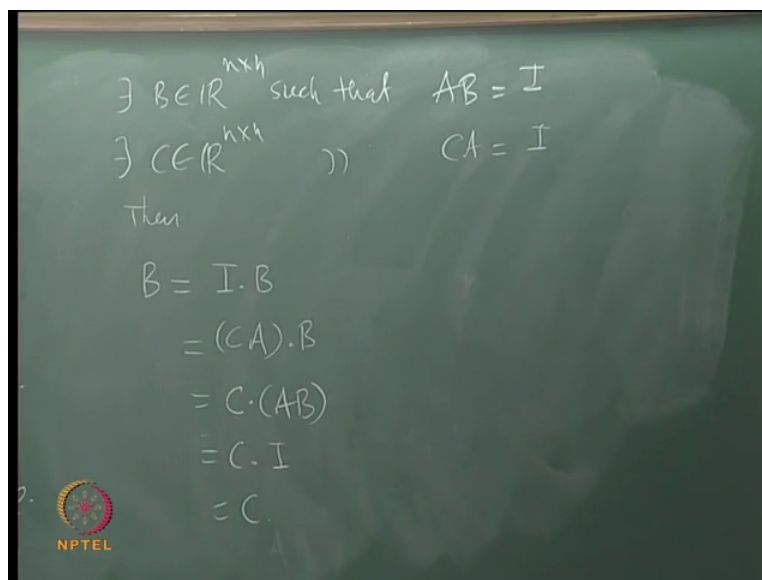 ∃ B ∈ ℝ^{n×n} such that AB = I
∃ C ∈ ℝ^{n×n} )) CA = I
Then
B = I. B
= (CA). B
= C. (AB)
= C. I
= C.
NPTEL